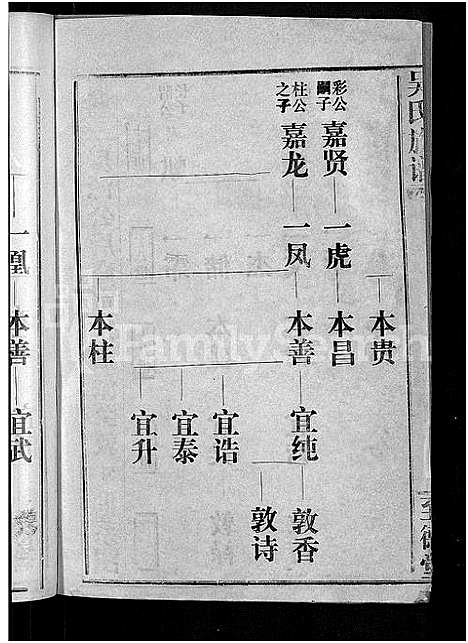 吴氏族谱
彩公
嗣子
嘉贤
一虎
本昌
本贵
柱公
之子
嘉龙
一凤
本善
宜纯
敦香
敦诗
宜诰
宜泰
宜升
本柱
一凰
本善
宜武
FamilySearch